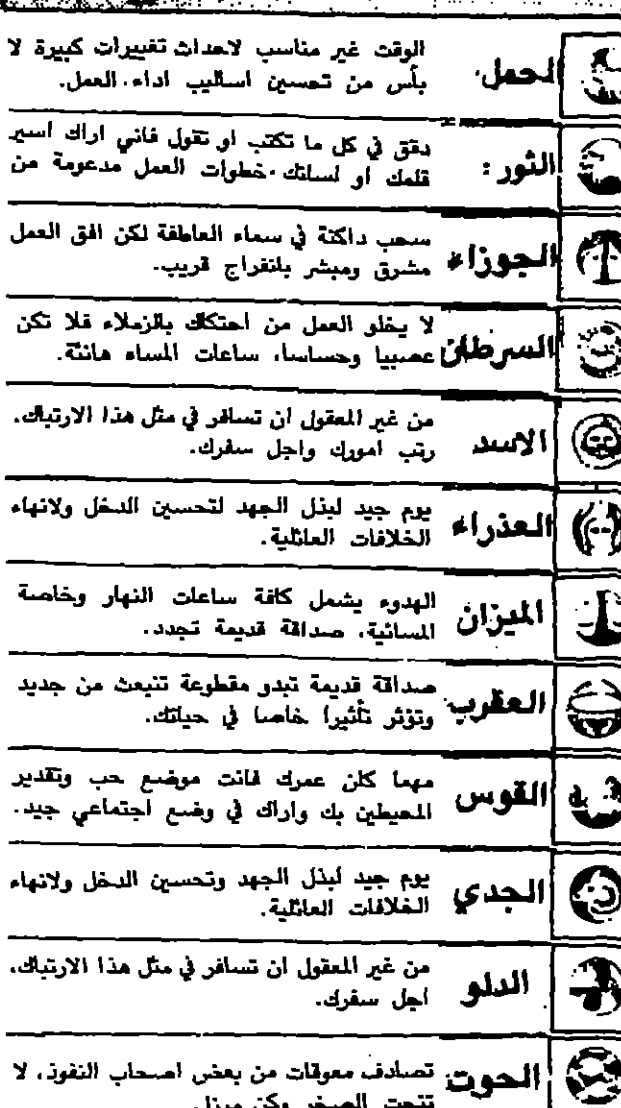 الحمل
الوقت غير مناسب لاحداث تغييرات كبيرة لا
بأس من تحسين اساليب اداء العمل.
الثور :
دقق في كل ما تكتب او تقول فاني اراك اسير
قلمك او لسانك خطوات العمل مدعومة من
الجوزاء
سحب داكنة في سماء العاطفة لكن افق العمل
مشرق ومبشر بانفراج قريب.
السرطان
لا يخلو العمل من احتكاك بالزملاء فلا تكن
عصبيا وحساسا، ساعات المساء هانئة.
الاسد
من غير المعقول ان تسافر في مثل هذا الارتباك.
رتب امورك واجل سفرك.
العذراء
يوم جيد لبذل الجهد لتحسين الدخل ولانهاء
الخلافات العائلية.
الميزان
الهدوء يشمل كافة ساعات النهار وخاصة
المسائية، صداقة قديمة تجدد.
العقرب
صداقة قديمة تبدو مقطوعة تنبعث من جديد
وتؤثر تأثيرا خاصا في حياتك.
القوس
مهما كان عمرك فانت موضع حب وتقدير
المحيطين بك واراك في وضع اجتماعي جيد.
الجدي
يوم جيد لبذل الجهد وتحسين الدخل ولانهاء
الخلافات العائلية.
الدلو
من غير المعقول ان تسافر في مثل هذا الارتباك،
اجل سفرك.
الحوت
تصادف معوقات من بعض اصحاب النفوذ، لا
تنحت الصخر وكن